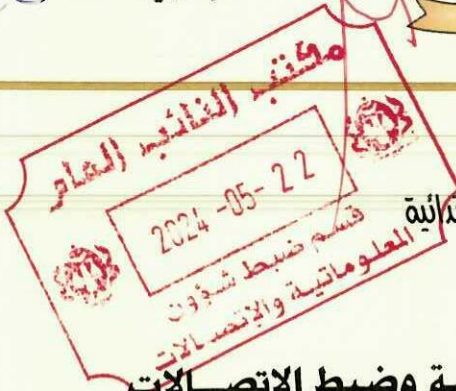 مكتب النائب العام
2024-05-22
قسم ضبط شؤون
المعلوماتية والإتصالات
ضبط الاتصالات